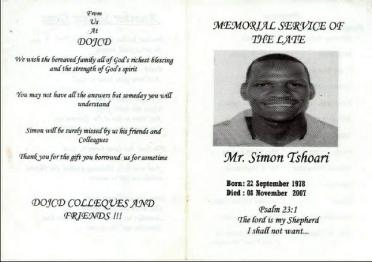 From
Us
At
DOJCD
We wish the bereaved family all of God's richest blessing
and the strength of God's spirit
You may not have all the answers but someday you will
understand
Simon will be surely missed by us his friends and
Colleagues
Thank you for the gift you borrowd us for sometime
DOJCD COLLEQUES AND
FRIENDS !!!
MEMORIAL SERVICE OF
THE LATE
Mr. Simon Tshoari
Born: 22 September 1978
Died : 08 November 2007
Psalm 23:1
The lord is my Shepherd
I shall not want...